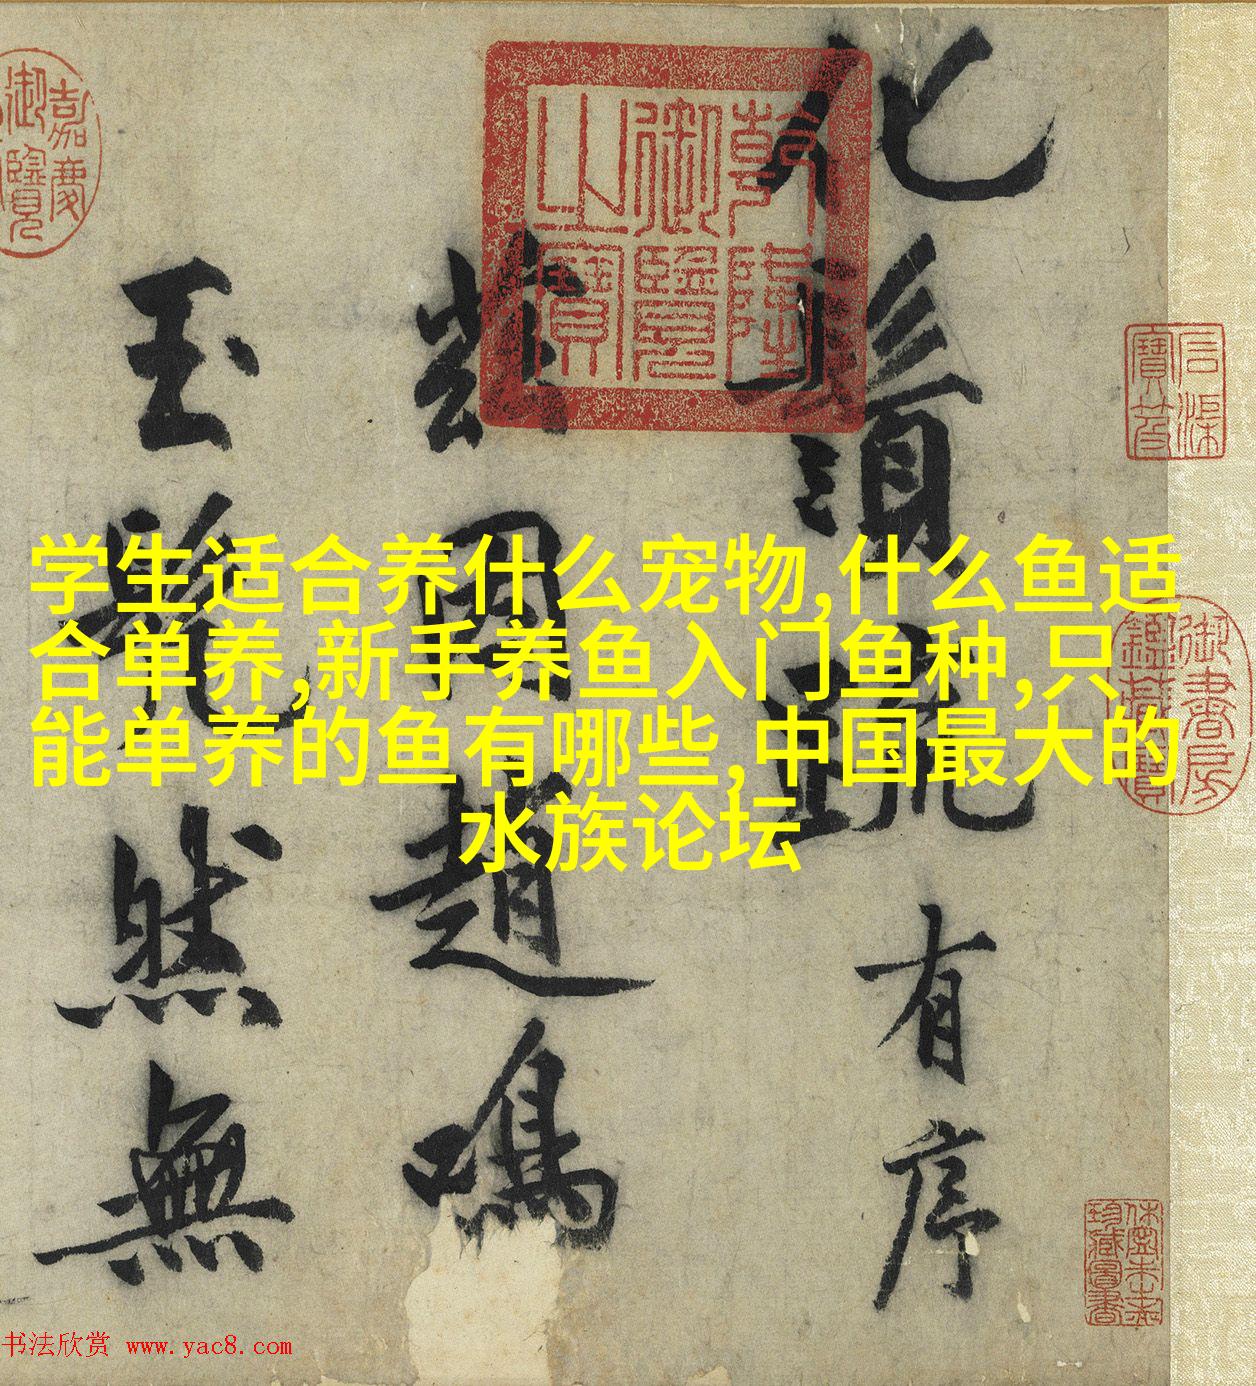 学生适合养什么宠物,什么鱼适
合单养,新手养鱼入门鱼种,只
能单养的鱼有哪些,中国最大的
水族论坛
有序
趙鳴
玉
然無
乾隆御覽之寶
嘉慶御覽
御書房鑑藏寶
石渠寶笈
书法欣赏 www.yac8.com